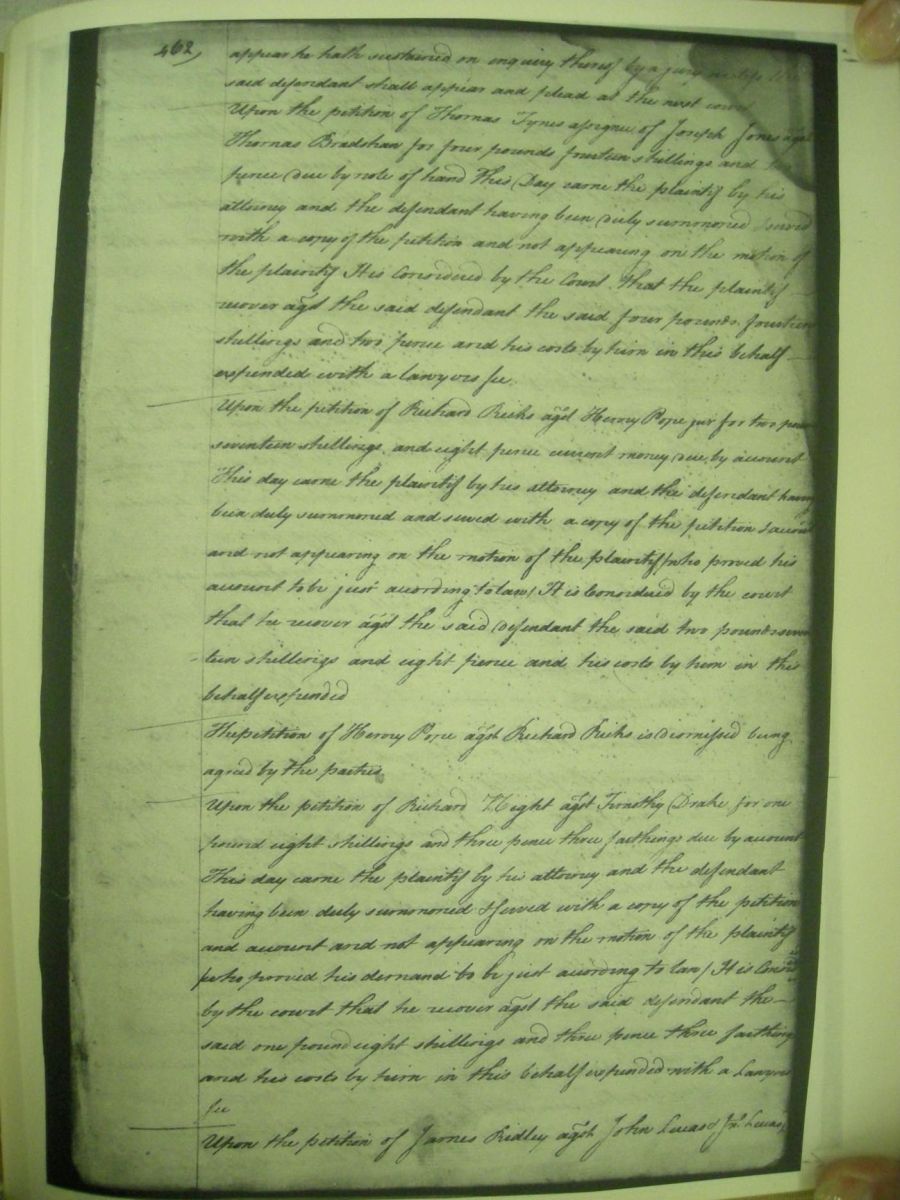 462,
appear he hath sustained on enquiry thereof by a jury unless the
said defendant shall appear and plead at the next court
Upon the petition of Thomas Tynes assignee of Joseph Jones agst
Thomas Bradshaw for four pounds fourteen shillings and two
pence due by note of hand This Day came the plaintif by his
attorney and the defendant having been duly summoned & served
with a copy of the petition and not appearing on the motion of
the plaintif It is Considered by the Court that the plaintif
recover agst the said defendant the said four pounds fourteen
shillings and two pence and his costs by him in this behalf
expended with a lawyers fee.
Upon the petition of Richard Ricks agst Henry Pope junr for two pounds
seventeen shillings and eight pence current money due by account
This day came the plaintif by his attorney and the defendant having
been duly summoned and served with a copy of the petition & account
and not appearing on the motion of the plaintif (who proved his
account to be just according to law) It is Considered by the court
that he recover agst the said defendant the said two pounds seven
teen shillings and eight pence and his costs by him in this
behalf expended
The petition of Henry Pope agst Richard Ricks is Dismissed being
agreed by the parties
Upon the petition of Richard agst Timothy Drake for one
pound eight shillings and three pence three farthings due by account
This day came the plaintif by his attorney and the defendant
having been duly summoned & served with a copy of the petition
and account and not appearing on the motion of the plaintif
(who proved his demand to be just according to law) It is Considd
by the court that he recover agst the said defendant the
said one pound eight shillings and three pence three farthings
and his costs by him in this behalf expended with a Lawyers
fee
Upon the petition of James Ridley agst John Lucas & Jno. Lucas,